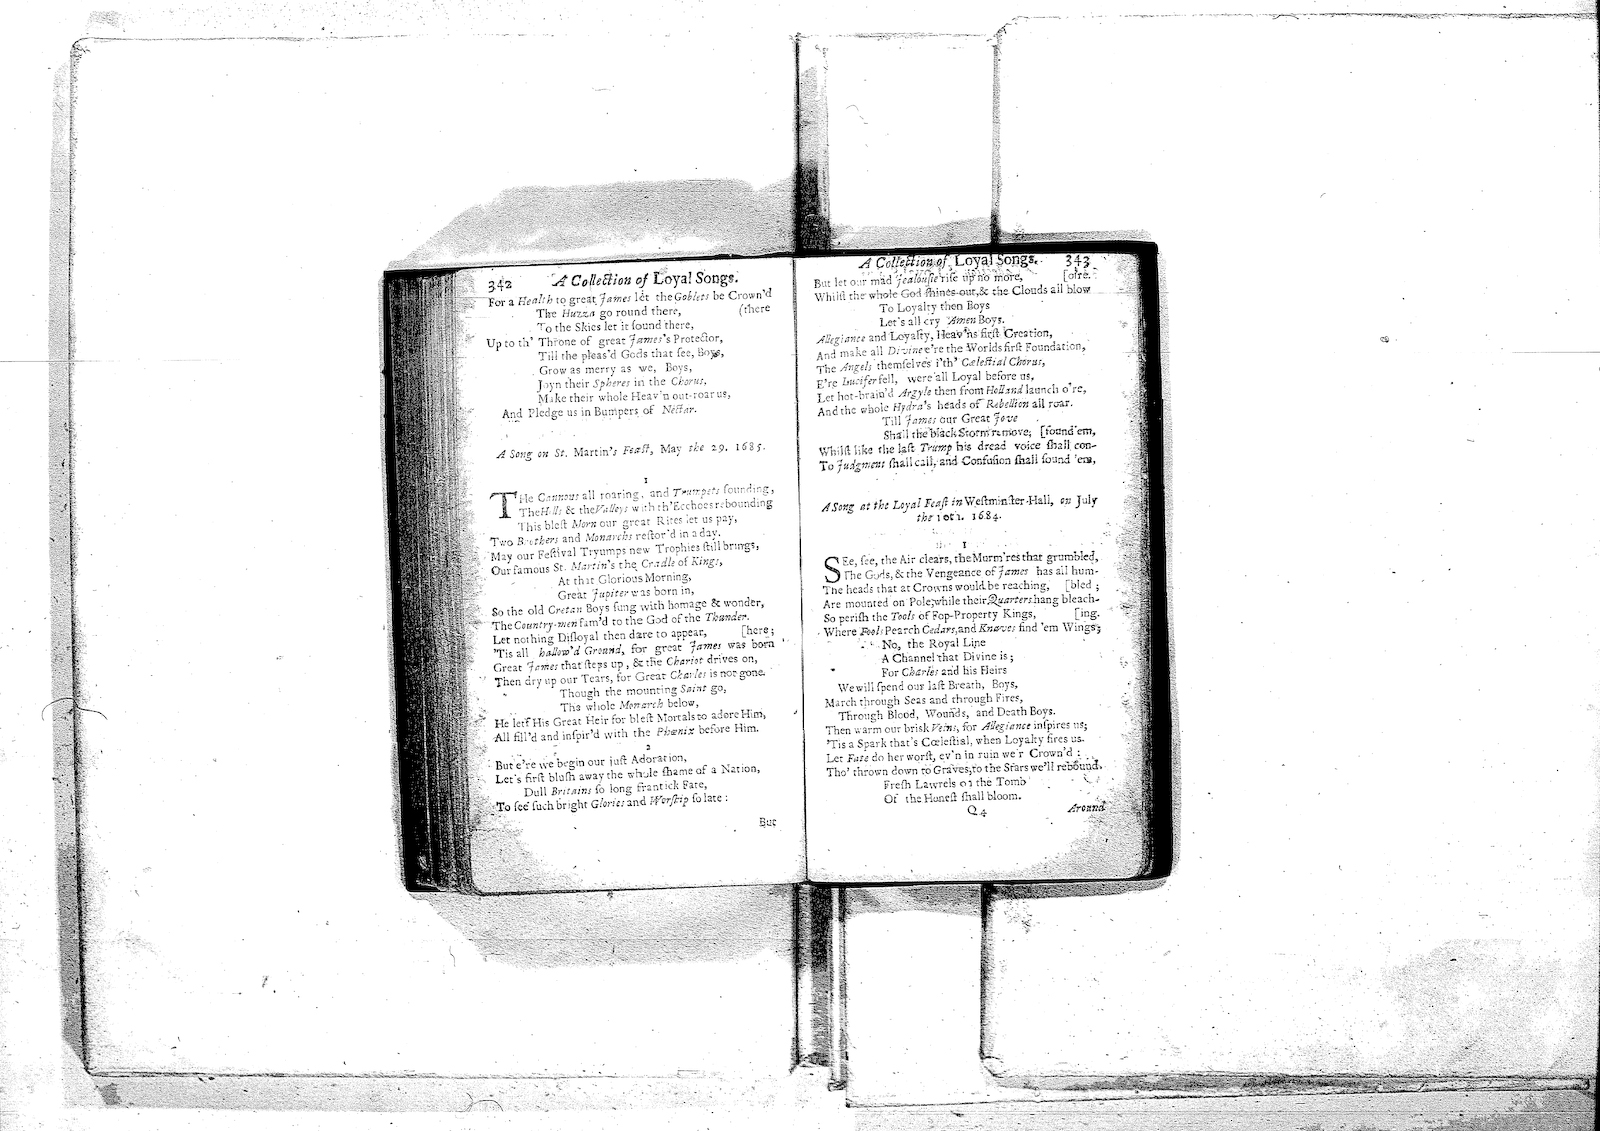 342 A Collection of Loyal Songs.
For a Health to great James let the Goblets be Crown'd
The Huzza go round there, (there
To the Skies let it sound there,
Up to th' Throne of great James's Protector,
Till the pleas'd Gods that see, Boys,
Grow as merry as we, Boys,
Joyn their Spheres in the Chorus,
Make their whole Heav'n out-roar us,
And Pledge us in Bumpers of Nectar.
A Song on St. Martin's Feast, May the 29. 1685.
1
THe Cannons all roaring, and Trumpets sounding,
The Hills & the Valleys with th' Ecchoes rebounding
This blest Morn our great Rites let us pay,
Two Brothers and Monarchs restor'd in a day.
May our Festival Tryumps new Trophies still brings,
Our famous St. Martin's the Cradle of Kings,
At that Glorious Morning,
Great Jupiter was born in,
So the old Cretan Boys sung with homage & wonder,
The Country-men fam'd to the God of the Thunder.
Let nothing Disloyal then dare to appear, [here;
'Tis all hallow'd Ground, for great James was born
Great James that steps up, & the Chariot drives on,
Then dry up our Tears, for Great Charles is not gone.
Though the mounting Saint go,
The whole Monarch below,
He left His Great Heir for blest Mortals to adore Him,
All fill'd and inspir'd with the Phœnix before Him.
2
But e're we begin our just Adoration,
Let's first blush away the whole shame of a Nation,
Dull Britains so long frantick Fate,
To see such bright Glories and Worship so late:
But
A Collection of Loyal Songs. 343
But let our mad Jealousie rise up no more, [o're.
Whilst the whole God shines out, & the Clouds all blow
To Loyalty then Boys
Let's all cry Amen Boys.
Allegiance and Loyalty, Heav'ns first Creation,
And make all Divine e're the Worlds first Foundation,
The Angels themselves i'th' Cœlestial Chorus,
E're Lucifer fell, were all Loyal before us,
Let hot-brain'd Argyle then from Holland launch o're,
And the whole Hydra's heads of Rebellion all roar.
Till James our Great Jove
Shall the black Storm remove; [found'em,
Whilst like the last Trump his dread voice shall con-
To Judgment shall call, and Confusion shall sound 'em,
A Song at the Loyal Feast in Westminster-Hall, on July
the 10th. 1684.
1
SEe, see, the Air clears, the Murm'res that grumbled,
The Gods, & the Vengeance of James has all hum-
The heads that at Crowns would be reaching, [bled;
Are mounted on Pole; while their Quarters hang bleach-
So perish the Tools of Fop-Property Kings, [ing.
Where Fools Pearch Cedars, and Knaves find 'em Wings;
No, the Royal Line
A Channel that Divine is;
For Charles and his Heirs
We will spend our last Breath, Boys,
March through Seas and through Fires,
Through Blood, Wounds, and Death Boys.
Then warm our brisk Veins, for Allegiance inspires us;
'Tis a Spark that's Cœlestial, when Loyalty fires us.
Let Fate do her worst, ev'n in ruin we'r Crown'd:
Tho' thrown down to Graves, to the Stars we'll rebound.
Fresh Lawrels on the Tomb
Of the Honest shall bloom.
Q 4 Around